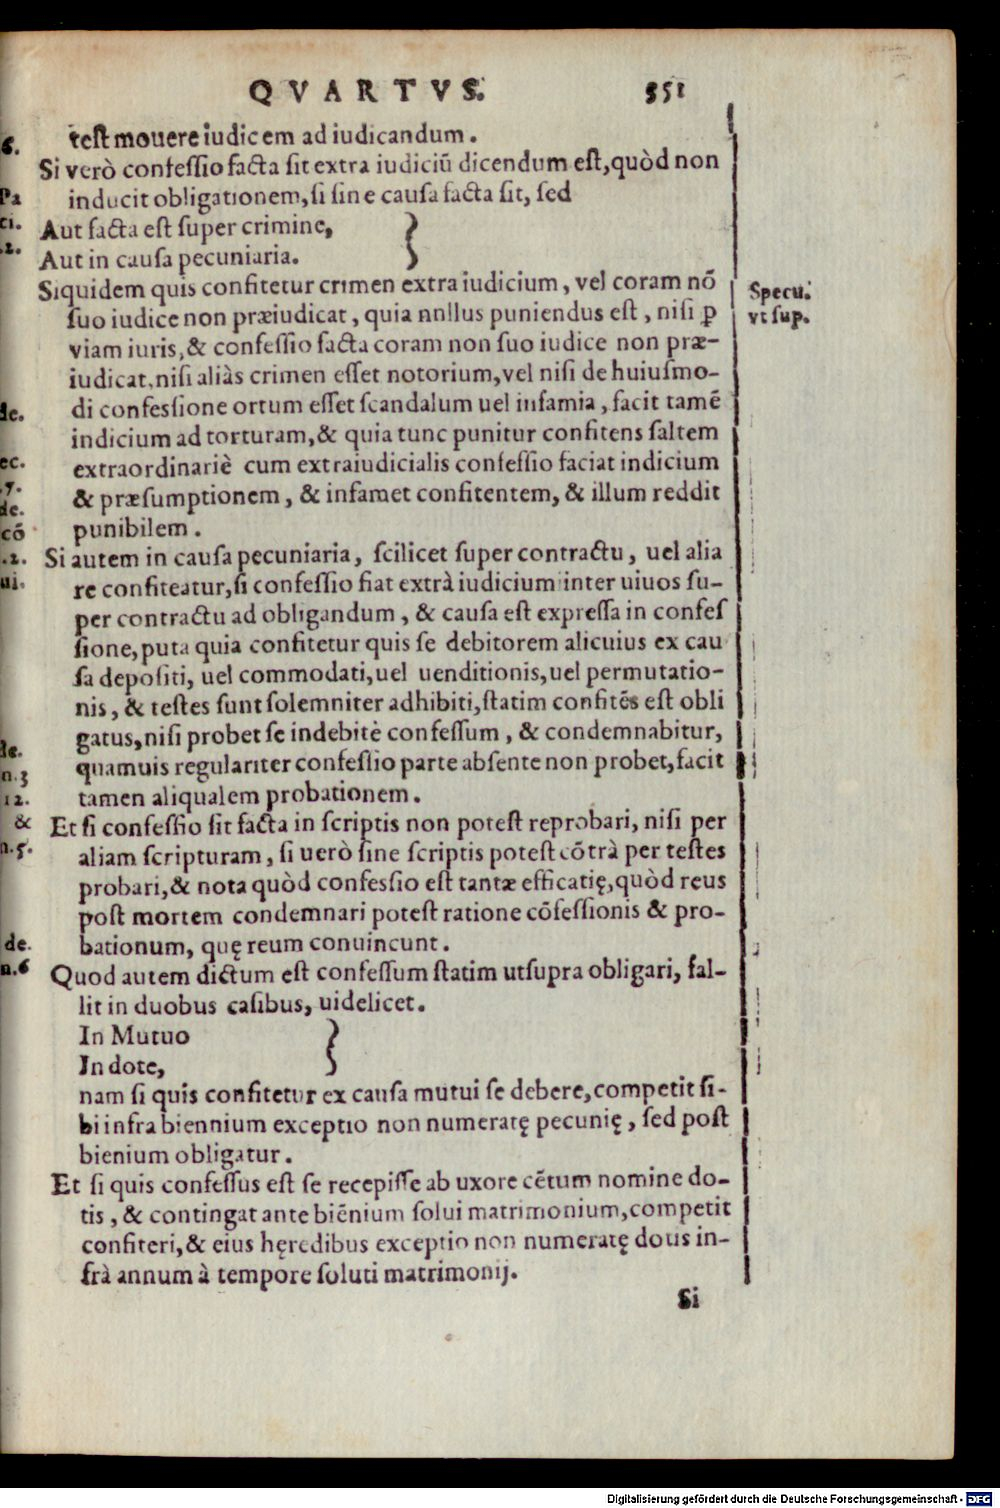 QVARTVS. 551
test mouere iudicem ad iudicandum.
Si verò confessio facta sit extra iudiciũ dicendum est, quòd non
inducit obligationem, si sine causa facta sit, sed
Aut facta est super crimine, }
Aut in causa pecuniaria.
Siquidem quis confitetur crimen extra iudicium, vel coram nõ
suo iudice non præiudicat, quia nnllus puniendus est, nisi ꝑ
viam iuris, & confessio facta coram non suo iudice non præ-
iudicat, nisi aliàs crimen esset notorium, vel nisi de huiusmo-
di confessione ortum esset scandalum uel infamia, facit tamẽ
indicium ad torturam, & quia tunc punitur confitens saltem
extraordinariè cum extraiudicialis confessio faciat indicium
& præsumptionem, & infamet confitentem, & illum reddit
punibilem.
Si autem in causa pecuniaria, scilicet super contractu, uel alia
re confiteatur, si confessio fiat extrà iudicium inter uiuos su-
per contractu ad obligandum, & causa est expressa in confes
sione, puta quia confitetur quis se debitorem alicuius ex cau
sa depositi, uel commodati, uel uenditionis, uel permutatio-
nis, & testes sunt solemniter adhibiti, statim confitẽs est obli
gatus, nisi probet se indebitè confessum, & condemnabitur,
quamuis regulariter confessio parte absente non probet, facit
tamen aliqualem probationem.
Et si confessio sit facta in scriptis non potest reprobari, nisi per
aliam scripturam, si uerò sine scriptis potest cõtrà per testes
probari, & nota quòd confessio est tantæ efficatię, quòd reus
post mortem condemnari potest ratione cõfessionis & pro-
bationum, quę reum conuincunt.
Quod autem dictum est confessum statim utsupra obligari, fal-
lit in duobus casibus, uidelicet.
In Mutuo }
In dote,
nam si quis confitetur ex causa mutui se debere, competit si-
bi infra biennium exceptio non numeratę pecunię, sed post
bienium obligatur.
Et si quis confessus est se recepisse ab uxore cẽtum nomine do-
tis, & contingat ante biẽnium solui matrimonium, competit
confiteri, & eius hęredibus exceptio non numeratę dotis in-
frà annum à tempore soluti matrimonij.
Si
Specu.
vt sup.
6.
Pa
ci.
.2.
de.
ec.
.7.
de.
cõ
.2.
ui.
de.
n.3
12.
&
n.5.
de.
n.6
Digitalisierung gefördert durch die Deutsche Forschungsgemeinschaft - DFG